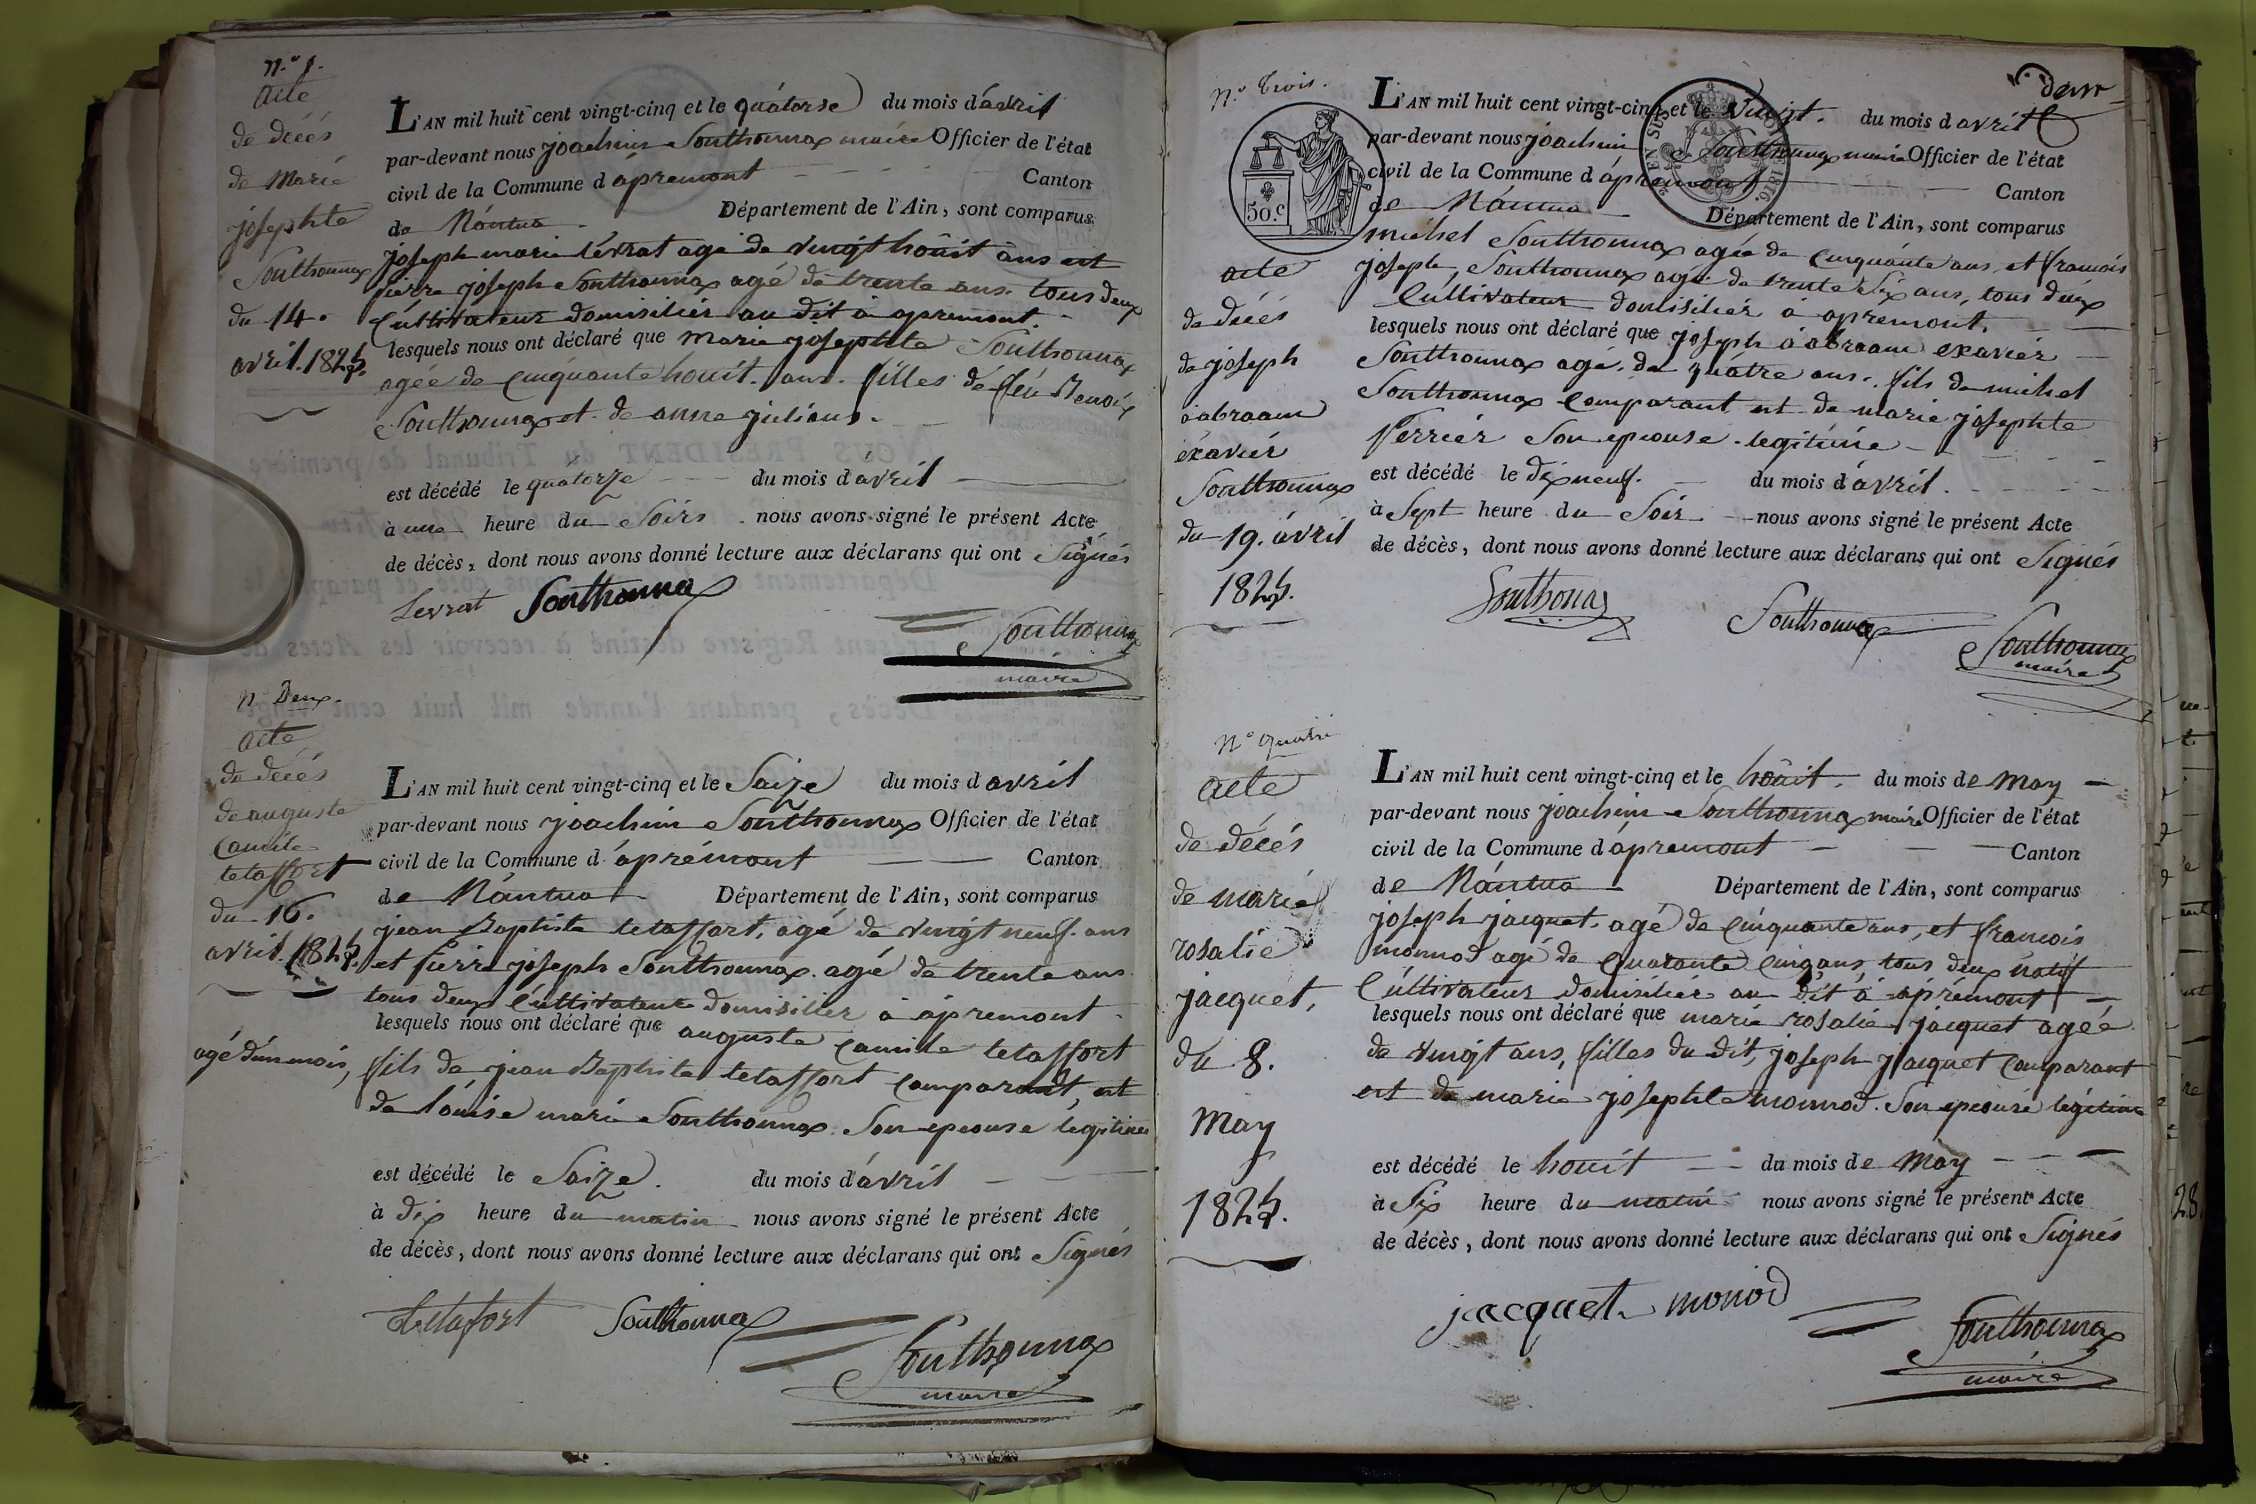 N.º 1.
acte
de décés
de marie
josephte
Southonnax
du 14.
avril. 1825.
L'AN mil huit cent vingt-cinq et le quátorse du mois d'ávril
par-devant nous joachim Southonnax maire Officier de l'état
civil de la Commune d ápremont Canton
de Nántua Département de l'Ain, sont comparus
joseph marie levrat agé de vingt houit ans et
pierre joseph Southonnax agé de trente ans. tous deux
Cultivateur domisiliér au dit à apremont.
lesquels nous ont déclaré que marie josephte Southonnax
agée de Cinquante houit. ans. filles de feu Benoix
Southonnax et de anne juliane.
est décédé le quátorze du mois d ávril
à une heure du Soirs nous avons signé le présent Acte
de décès, dont nous avons donné lecture aux déclarans qui ont Signés
Levrat Southonnax
Southonnax
maire
N.º Deux.
acte
de décés
de auguste
Camille
tetaffort
du 16.
avril. 1825.
agé d'un mois,
L'AN mil huit cent vingt-cinq et le Saize du mois d avril
par-devant nous joachim Southonnax Officier de l'état
civil de la Commune d áprémont Canton
de Nántua Département de l'Ain, sont comparus
jean Baptiste tetaffort, agé de vingt neuf. ans
et pierre joseph Southonnax. agé de trente ans
tous deux Cultivateur domisilier à ápremont
lesquels nous ont déclaré que auguste Camille tetaffort
fils de jean Baptiste tetaffort Comparant, et
de louise marie Southonnax. Son epeouse légitime
est décédé le Saize. du mois d ávril
à dix heure du matin nous avons signé le présent Acte
de décès, dont nous avons donné lecture aux déclarans qui ont Signés
tetafort Southonnax
Southonnax
maire
deux
N.º Trois.
50.c
acte
de décés
de joseph
aabraam
éxaviér
Southonnax
du 19. ávril
1825.
L'AN mil huit cent vingt-cinq et le Vingt. du mois d avril
par-devant nous joachim Southonnax maire Officier de l'état
civil de la Commune d ápremont Canton
de Nántua Département de l'Ain, sont comparus
michel Southonnax agée de Cinquánte ans et francois
joseph, Southonnax agé de trente Six ans, tous deux
Cultivateur domisiliér à apremont,
lesquels nous ont déclaré que joseph aabraam exaviér
Southonnax agé. de quátre ans. fils de michel
Southonnax Comparant et de marie josephte
Perriér Son epeouse legitimée
est décédé le dixneuf. du mois d ávril.
à Sept heure du Soir nous avons signé le présent Acte
de décès, dont nous avons donné lecture aux déclarans qui ont Signés
Southonax Southonnax
Southonnax
maire
N.º quatre
acte
de décés
de marie
rosalie
jacquet,
du 8.
may
1825.
L'AN mil huit cent vingt-cinq et le hoûit. du mois de may
par-devant nous joachim Southonnax maire Officier de l'état
civil de la Commune d ápremont Canton
de Nántua Département de l'Ain, sont comparus
joseph jacquet. agé de Cinquante ans, et francois
monnod agé de quarante Cinq ans tous deux natif
Cultivateur domisilier au dit à aprémont
lesquels nous ont déclaré que marie rosalie jacquet agée
de vingt ans, filles du dit, joseph jacquet Comparant
et de marie josephte monnod. Son epeouse légitime
est décédé le houit du mois de may
à Six heure du matin nous avons signé le présent Acte
de décès, dont nous avons donné lecture aux déclarans qui ont Signés
jacquet monod
Southonnax
maire
28